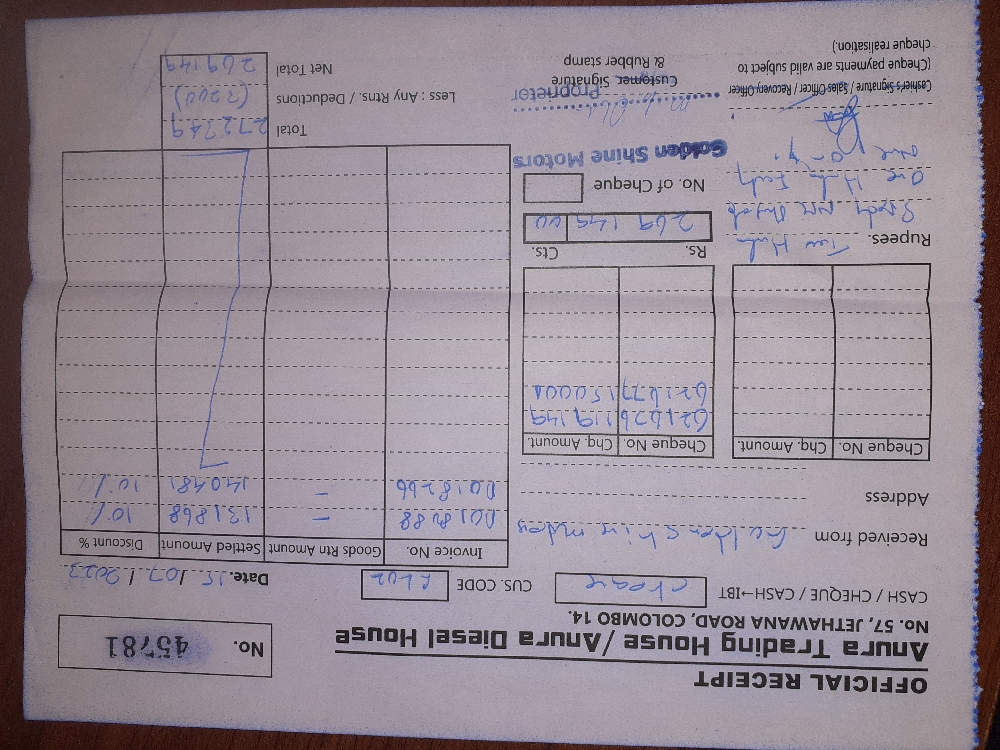 OFFICIAL RECEIPT
Anura Trading House / Anura Diesel House
No. 57, JETHAWANA ROAD, COLOMBO 14.
No. 45781
CASH / CHEQUE / CASH→IBT cheque
CUS. CODE
Date. 15/07/2023
Received from Golden Shine Motors
Address
Cheque No. Chq. Amount.
Cheque No. Chq. Amount.
621676 119149
621677 150000
Rupees. Two Hun
Sixty Nine
One Hun Forty
Nine Only.
Rs. Cts.
269 149 00
No. of Cheque
Golden Shine Motors
Proprieter
Cashier's Signature / Sales Officer / Recovery Officer
(Cheque payments are valid subject to
cheque realisation.)
Customer Signature
& Rubber stamp
Invoice No. Goods Rtn Amount Settled Amount Discount %
– 131868 10%
– 140481 10%
Total 272749
Less : Any : Rtns. / Deductions (3200)
Net Total 269149